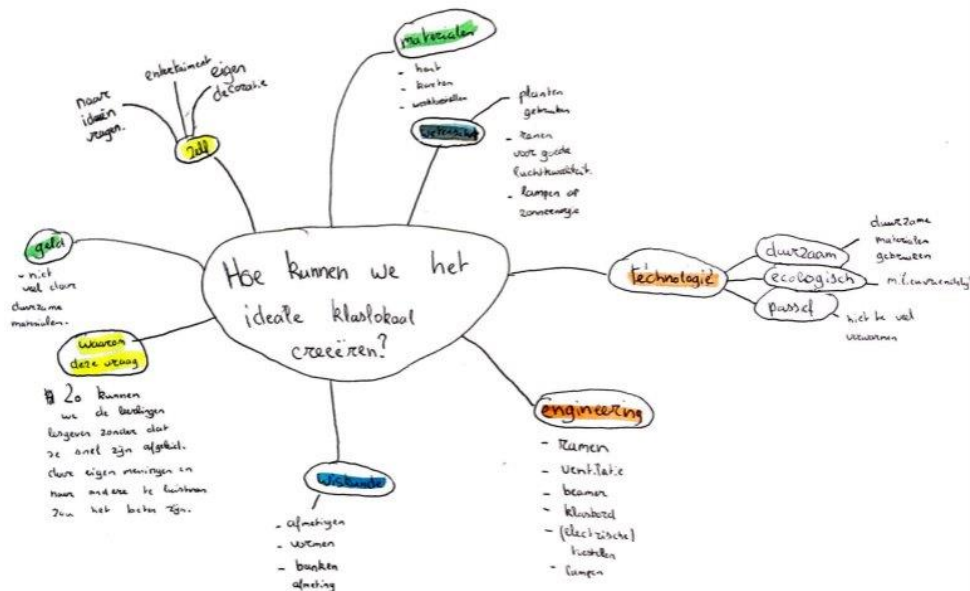 Hoe kunnen we het
ideale klaslokaal
creeëren?
materialen
- hout
- karton
wetenschap
planten
gebruiken
- ramen
voor goede
luchtkwaliteit.
- lampen op
zonneenergie
technologie
duurzaam
duurzame
materialen
gebruiken
ecologisch
milieuvriendelijk
passef
niet te veel
verwarmen
engineering
- ramen
- ventilatie
- beamer
- klasbord
- (electrische)
toestellen
- lampen
wiskunde
- afmetigen
- vormen
- banken
afmeting
waarom
deze vraag
Zo kunnen
we de leerlingen
lesgeven zonder dat
ze snel zijn afgeleid.
door eigen meningen en
naar andere te luisteren
zou het beter zijn.
geld
niet
veel door
duurzame
materialen.
zelf
naar
ideën
vragen.
entertaiment
eigen
decoratie